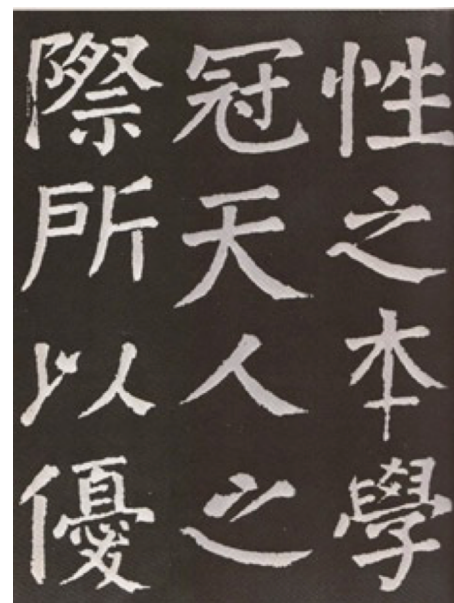 性之本學
冠天人之
際所以優